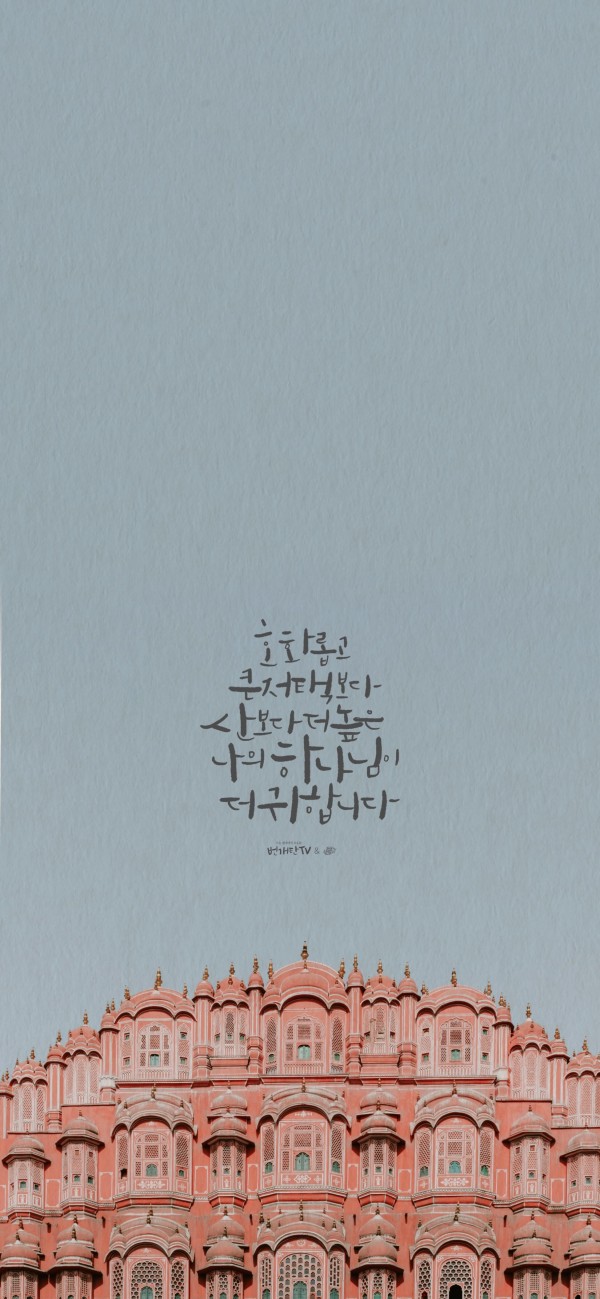 호화롭고
큰 저택보다
산보다 더 높은
나의 하나님이
더 귀합니다
번개탄TV &